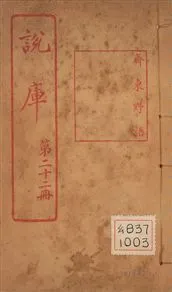 說庫
第二十二冊
齊東野語
837
1003